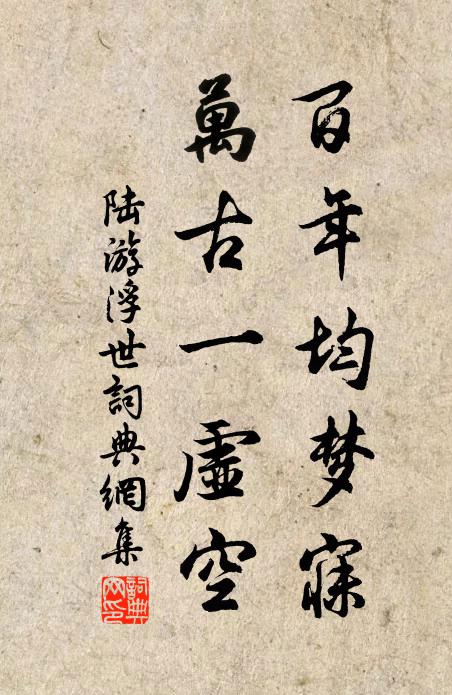 百年均梦寐
萬古一虛空
陸游浮世詞典網集
詞典網印